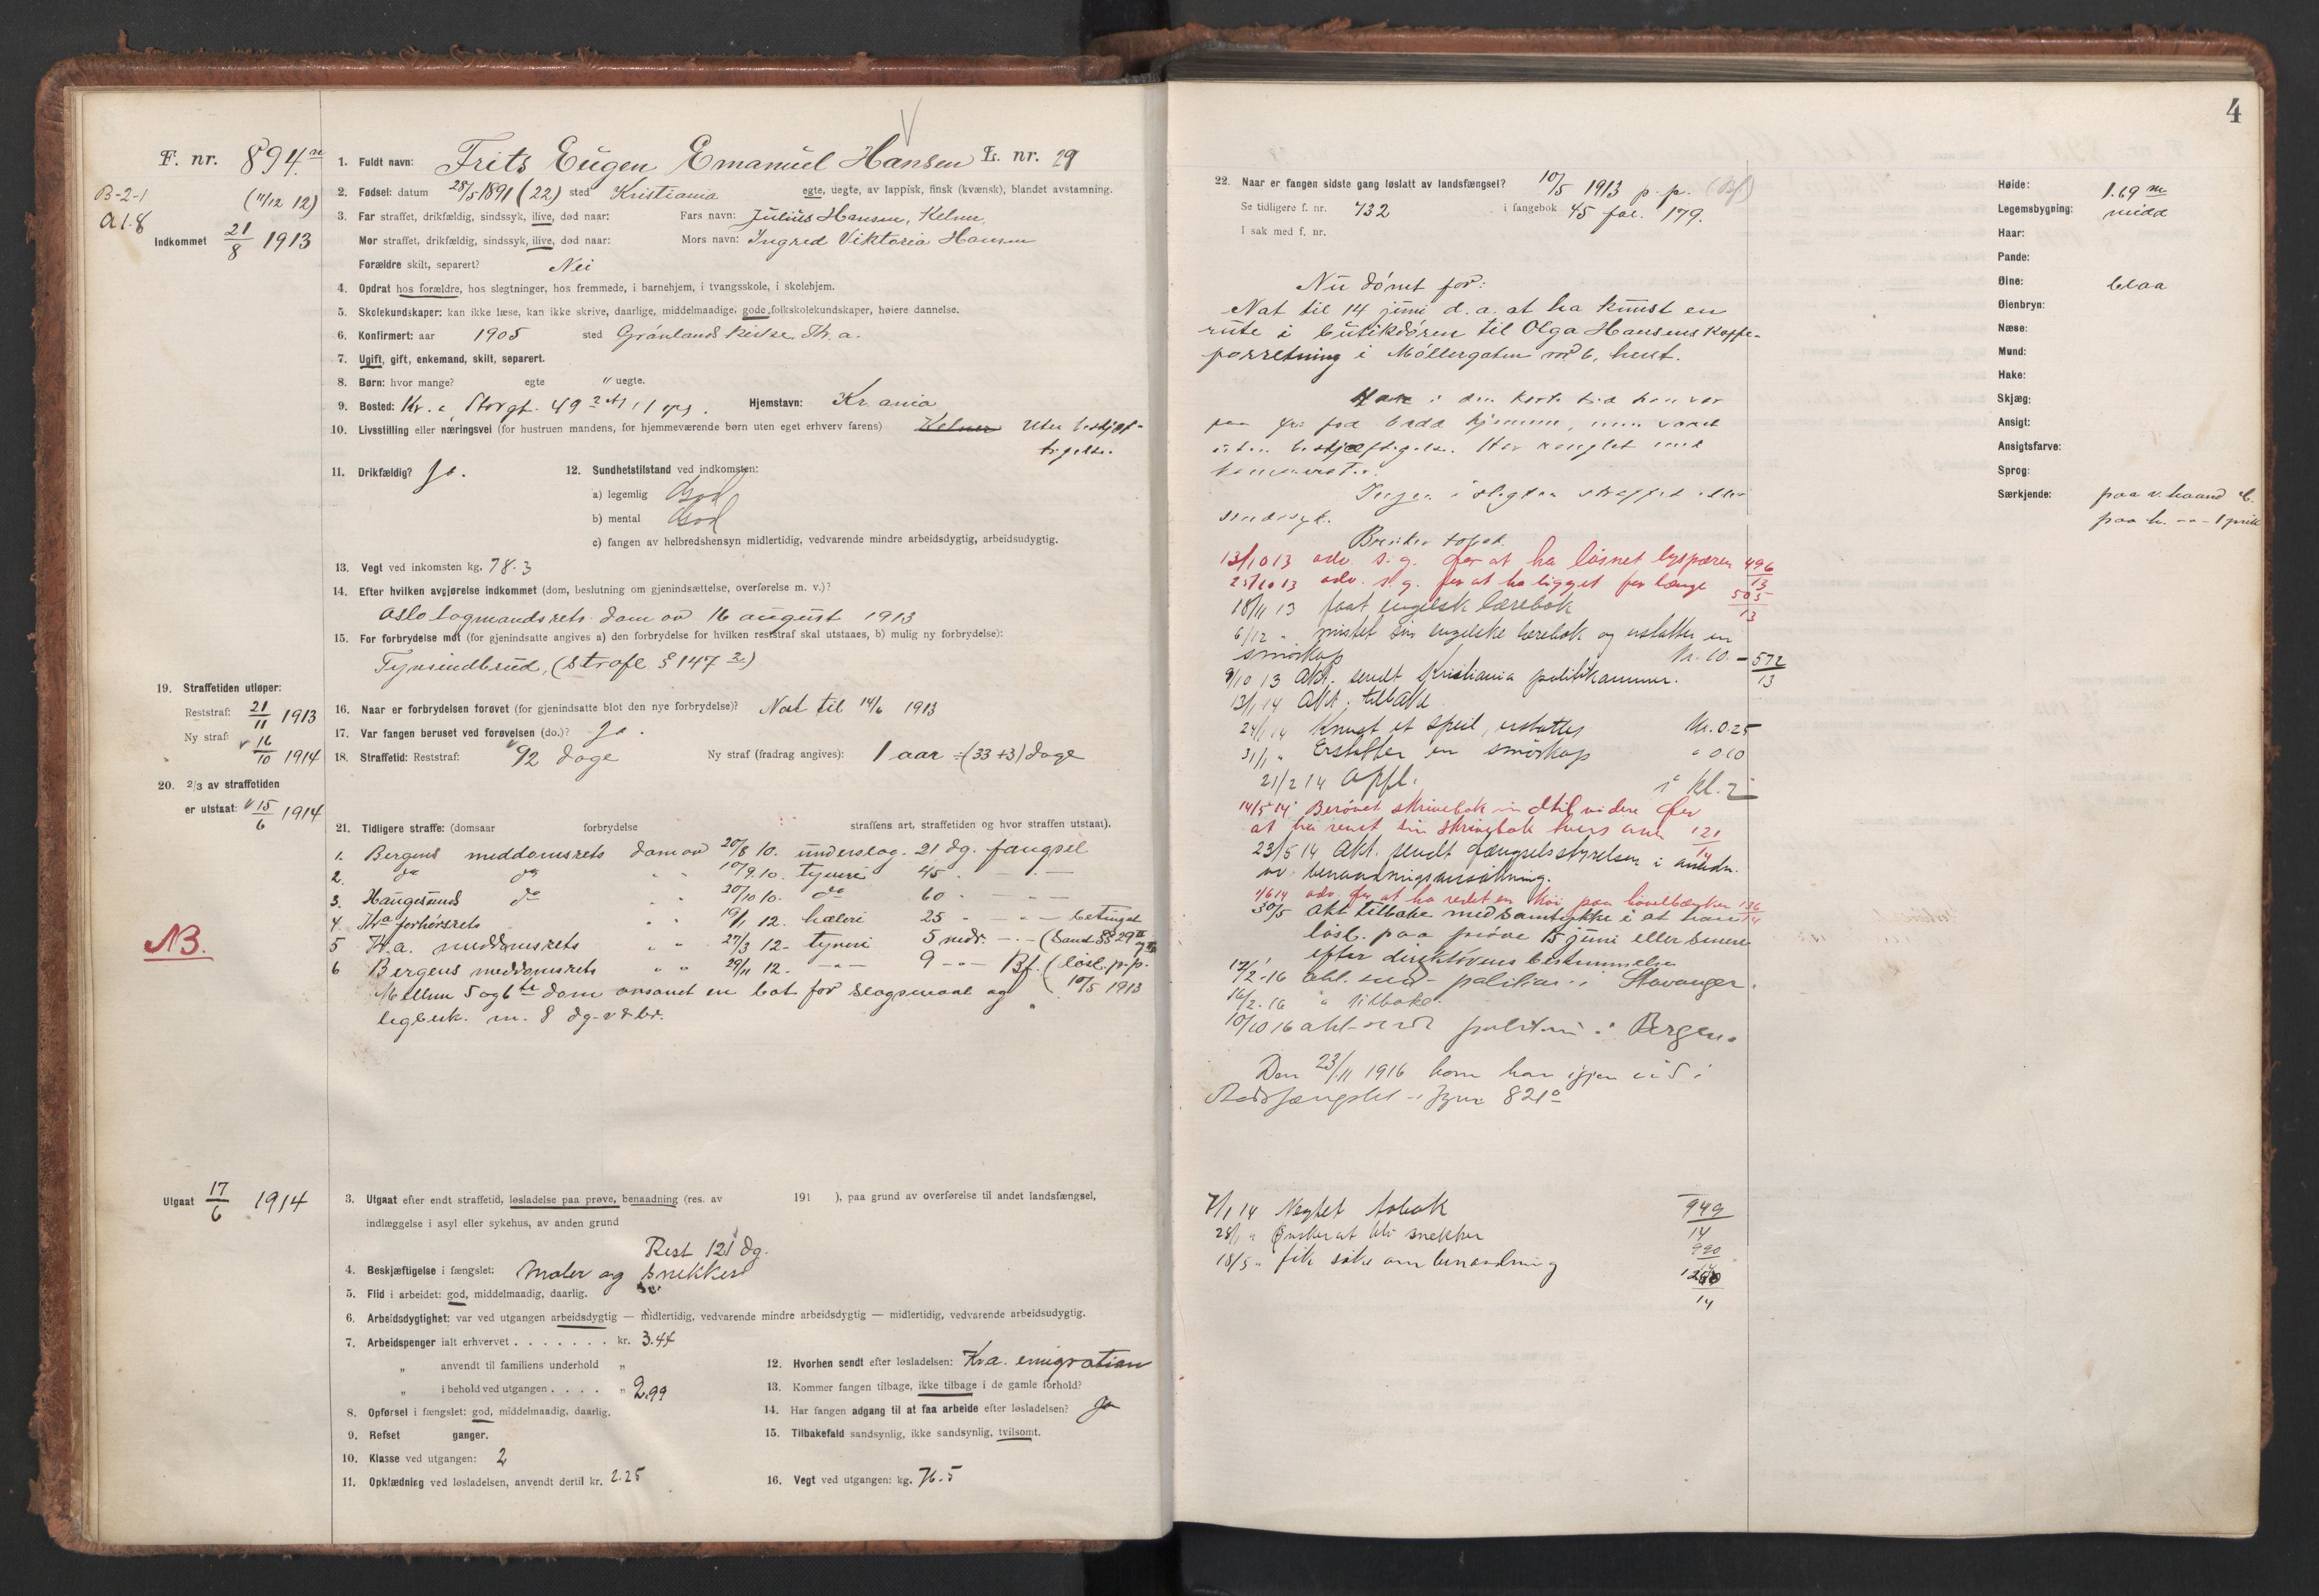 4
F. nr. 894
B-2-1
A 1.8
(11/12 12)
Indkommet 21/8 1913
1. Fuldt navn: Frits Eugen Emanuel Hansen L. nr. 29
2. Fødsel: datum 28/5 1891 (22) sted Kristiania egte, uegte, av lappisk, finsk (kvænsk), blandet avstamning.
3. Far straffet, drikfældig, sindssyk, ilive, død naar: Fars navn: Julius Hansen, Kelner
Mor straffet, drikfældig, sindssyk, ilive, død naar: Mors navn: Ingrid Viktoria Hansen
Forældre skilt, separert? Nei
4. Opdrat hos forældre, hos slegtninger, hos fremmede, i barnehjem, i tvangsskole, i skolehjem.
5. Skolekundskaper: kan ikke læse, kan ikke skrive, daarlige, middelmaadige, gode folkskolekundskaper, høiere dannelse.
6. Konfirmert: aar 1905 sted Grønlands kirke
7. Ugift, gift, enkemand, skilt, separert.
8. Børn: hvor mange? egte " uegte.
9. Bosted: Kr.a, Storgt. 49 Hjemstavn: Kr.ania
10. Livsstilling eller næringsvei (for hustruen mandens, for hjemmeværende børn uten eget erhverv farens) Kelner Uten beskjæf-
tigelse.
11. Drikfældig? Ja. 12. Sundhetstilstand ved indkomsten:
a) legemlig God
b) mental God
c) fangen av helbredshensyn midlertidig, vedvarende mindre arbeidsdygtig, arbeidsudygtig.
13. Vegt ved inkomsten kg. 78.3
14. Efter hvilken avgjørelse indkommet (dom, beslutning om gjenindsættelse, overførelse m. v.)?
Oslo lagmandsrets dom av 16 august 1913
15. For forbrydelse mot (for gjenindsatte angives a) den forbrydelse for hvilken reststraf skal utstaaes, b) mulig ny forbrydelse):
Tyviindbrud, (Strafl § 147 2)
19. Straffetiden utløper:
Reststraf: 21/11 1913
Ny straf: 16/10 1914
16. Naar er forbrydelsen forøvet (for gjenindsatte blot den nye forbrydelse)? Nat til 14/6 1913
17. Var fangen beruset ved forøvelsen (do.)? Ja.
18. Straffetid: Reststraf: 92 dage Ny straf (fradrag angives): 1 aar ÷ (33+3) dage
20. 2/3 av straffetiden
er utstaat: 15/6 1914
21. Tidligere straffe: (domsaar forbrydelse straffens art, straffetiden og hvor straffen utstaat).
1. Bergens meddomsrets dom av 20/8 10. underslag. 21 dg. fængsel
2. do do " " 10/9 10. tyveri 45 - - -
3. Haugesunds do " " 20/10 10. do 60 - - -
4. Kra forhørsrets " " 19/1 12. hæleri 25 - - - betinget
5 Kr.a. meddomsrets " " 27/3 12- tyveri 5 mdr. - - (
6 Bergens meddomsrets " " 29/11 12. - - 9 - - Bf. (løsl. p.p.
10/5 1913
Mellem 5 og 6te dom en bot for slagsmaal og
m. 8 dg. v & br.
NB.
Utgaat 17/6 1914
3. Utgaat efter endt straffetid, løsladelse paa prøve, benaadning (res. av 191 ), paa grund av overførelse til andet landsfængsel,
indlæggelse i asyl eller sykehus, av anden grund
Rest 121 dg.
4. Beskjæftigelse i fængslet: Maler og snekker
5. Flid i arbeidet: god, middelmaadig, daarlig.
6. Arbeidsdygtighet: var ved utgangen arbeidsdygtig — midlertidig, vedvarende mindre arbeidsdygtig — midlertidig, vedvarende arbeidsudygtig.
7. Arbeidspenger ialt erhvervet . . . . . . . kr. 3.44
" anvendt til familiens underhold "
" i behold ved utgangen . . . . " 2.99
8. Opførsel i fængslet: god, middelmaadig, daarlig.
9. Refset ganger.
10. Klasse ved utgangen: 2
11. Opklædning ved løsladelsen, anvendt dertil kr. 2.25
12. Hvorhen sendt efter løsladelsen: Kr.a. emigration
13. Kommer fangen tilbage, ikke tilbage i de gamle forhold?
14. Har fangen adgang til at faa arbeide efter løsladelsen? Ja
15. Tilbakefald sandsynlig, ikke sandsynlig, tvilsomt.
16. Vegt ved utgangen: kg. 76.5
22. Naar er fangen sidste gang løslatt av landsfængsel? 10/5 1913 p. p. (Bf)
Se tidligere f. nr. 732 i fangebok 45 fol. 179.
I sak med f. nr.
Nu dømt for:
Nat til 14 juni d. a. at ha knust en
rute i butikdøren til Olga Hansens Kaffe-
forretning i Møllergaten nr 6, hent.
Har i den korte tid han var
paa fri fod hjemme, men været
uten beskjæftigelse. Har ranglet med
kamerater.
Ingen i slegten straffet eller
sindssyk.
Bruker tobak.
13/10 13 adv. s. g. for at ha løsnet lyspæren 496/13
25/10 13 adv. s. g. for at ha ligget for længe 505/13
18/11 13 faat engelsk lærebok
6/12 " mistet sin engelske lærebok og erstatter en
smørkop Kr. 10.- 572/13
9/10 13 Akt. sendt Kristiania politikammer.
13/1 14 Akt. tilbake
24/1 14 Knust et speil, erstattes Kr. 0.25
31/1 " Erstatter en smørkop " 0.10
21/2 14 Opfl. i kl. 2
14/5 14 Berøvet skrivebok indtil videre for
at ha revet sin skrivebok tvers over 121/14
23/5 14 Akt. sendt fængselsstyrelsen i anledn.
av benaadningsansøkning.
30/5 akt tilbake med samtykke i at han
løsl. paa prøve 15 juni eller senere
efter direktørens bestemmelse
12/2-16 akt. send. politiet i Stavanger.
16/2.16 " tilbake.
10/10 16 akt. sendt politiet i Bergen.
Den 23/11 1916 kom han igjen ind i
Bodsfængslet - fgnr 821
7/1 14 Negtet tobak 949/14
28/1 " Ønsker at bli snekker 990
18/5 " fik søke om benaadning
14
Høide: 1.69 m
Legemsbygning: midd
Haar:
Pande:
Øine: blaa
Øienbryn:
Næse:
Mund:
Hake:
Skjæg:
Ansigt:
Ansigtsfarve:
Sprog:
Særkjende: paa v. haand
paa h. - - 1 prik